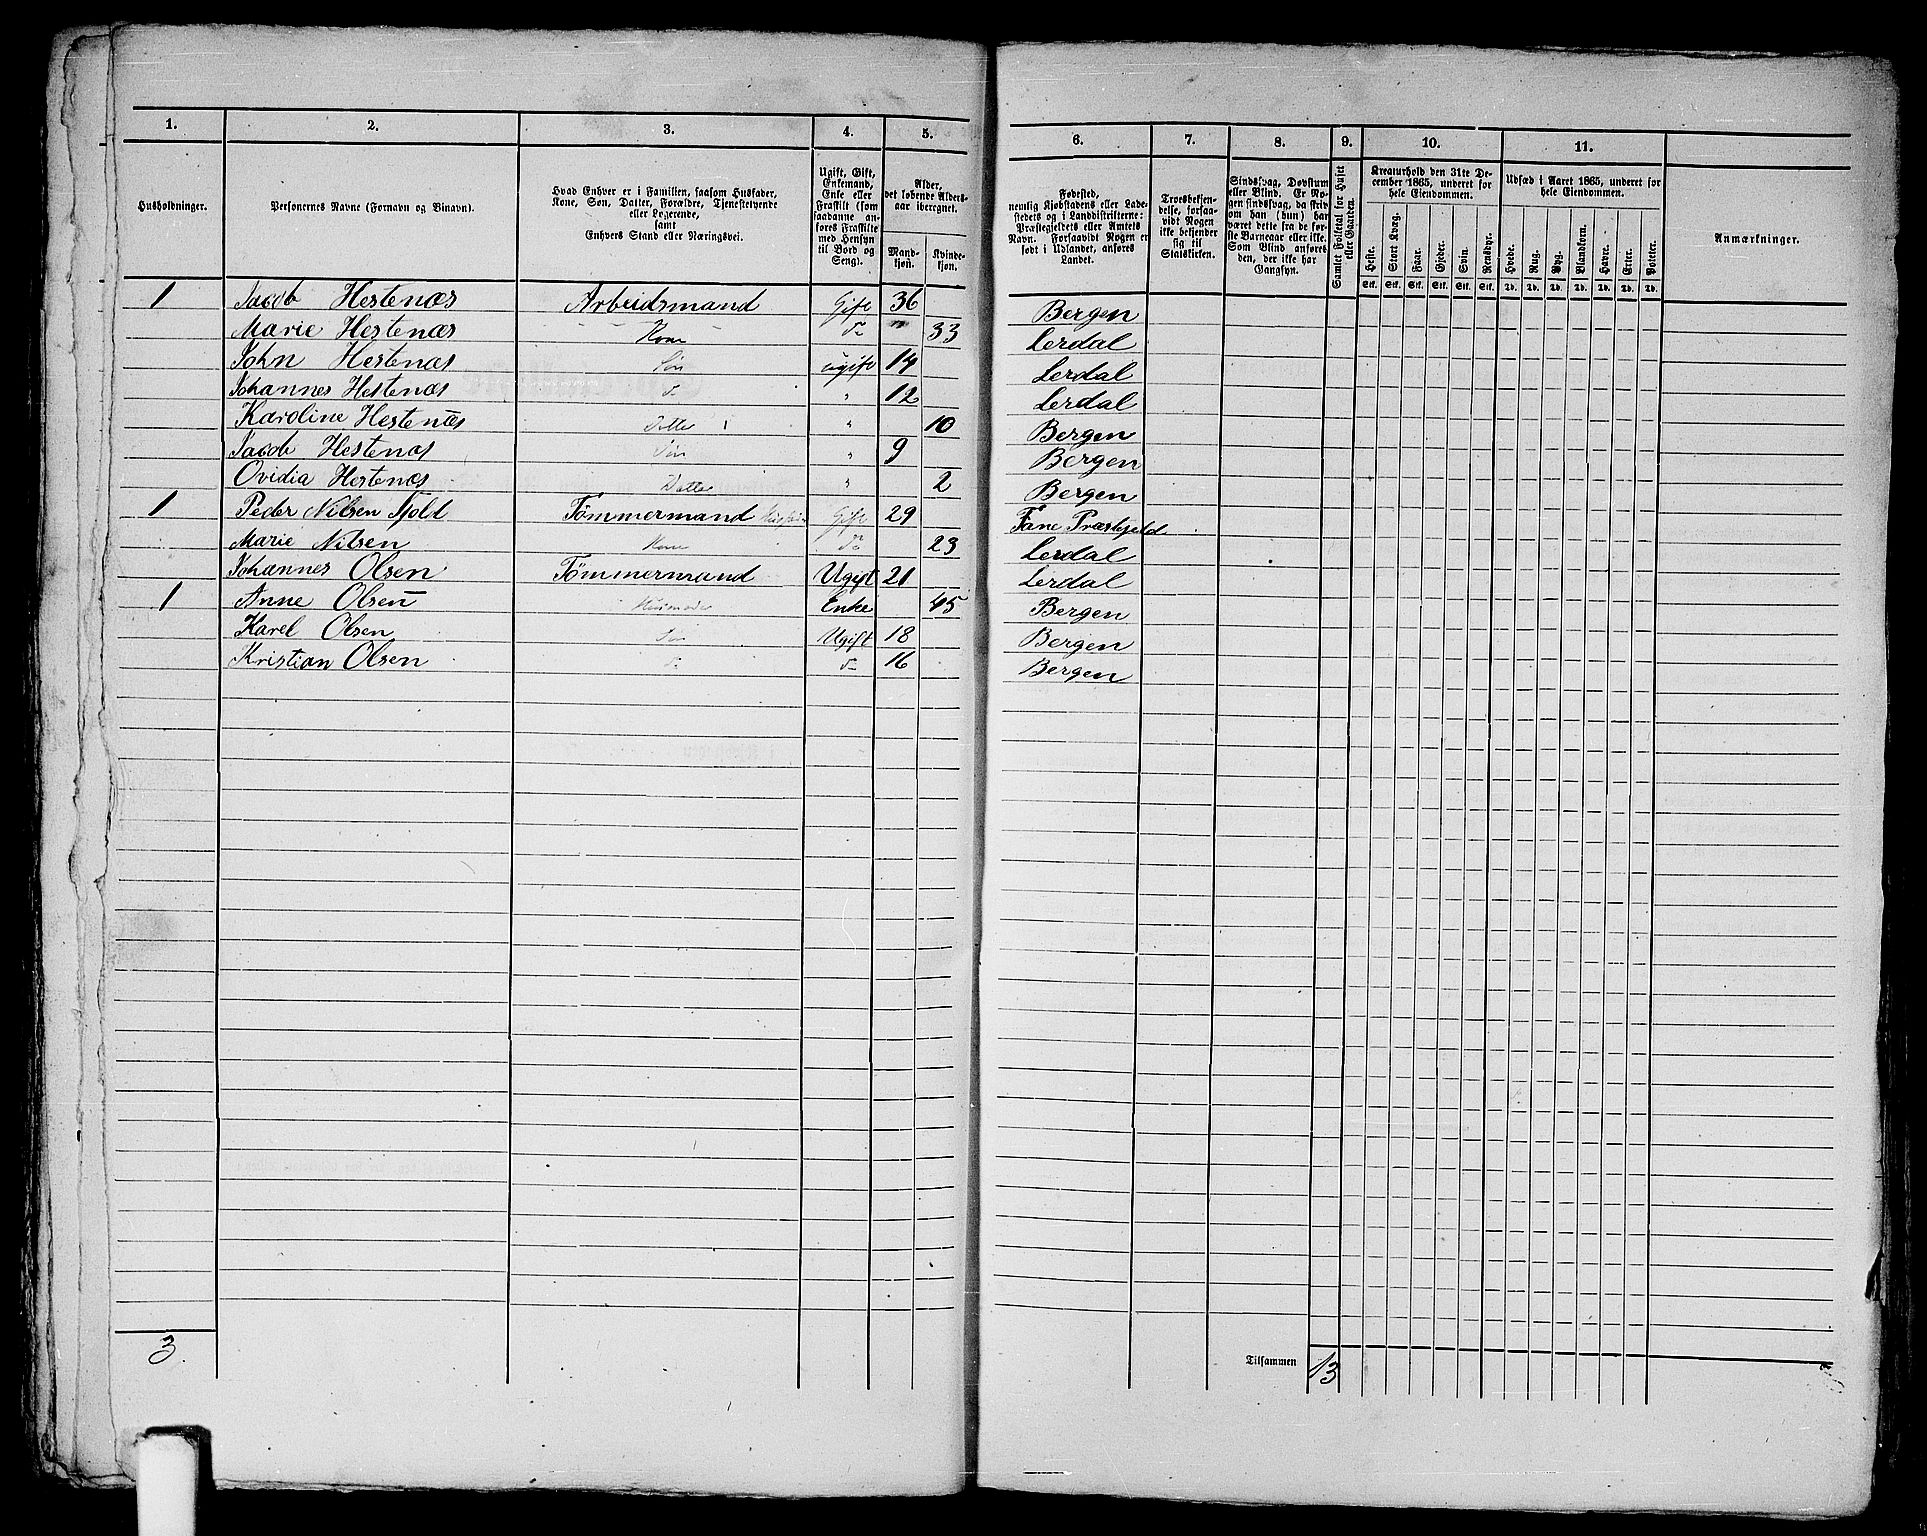 1. 2. 3. 4. 5. 6. 7. 8. 9. 10. 11.
Husholdninger.
Personernes Navne (Fornavn og Binavn).
Hvad Enhver er i Familien, saasom Husfader,
Kone, Søn, Datter, Forældre, Tjenestetyende
eller Logerende,
samt
Enhvers Stand eller Næringsvei.
Ugift, Gift,
Enkemand,
Enke eller
Fraskilt (som
saadanne an-
føres Fraskilte
med Hensyn
til Bord og
Seng).
Alder,
det løbende Alders-
aar iberegnet.
Mand-
kjøn.
Kvinde-
kjøn.
Fødested,
nemlig Kjøbstadens eller Lade-
stedets og i Landdistrikterne:
Præstegjeldets eller Amtets
Navn. Forsaavidt Nogen er
født i Udlandet, anføres
Landet.
Troesbekjen-
delse, forsaa-
vidt Nogen
ikke bekjender
sig til
Statskirken.
Sindssvag, Døvstum
eller Blind. Er No-
gen sindssvag, da skriv
om han (hun) har
været dette fra de før-
ste Barneaar eller ikke.
Som Blind anføres
den, der ikke har
Gangsyn.
Samlet Folketal for Huset
eller Gaarden.
Kreaturhold den 31te De-
cember 1865, underet for
hele Eiendommen.
Heste. Stort Kvæg. Faar. Gjeder. Svin. Rensdyr.
Stk. Stk. Stk. Stk. Stk. Stk.
Udsæd i Aaret 1865, underet for
hele Eiendommen.
Hvede. Rug. Byg. Blandkorn. Havre. Erter. Poteter.
Td. Td. Td. Td. Td. Td. Td.
Anmærkninger.
1 Jacob Hestenæs Arbeidsmand Gift 36 Bergen
Marie Hestenæs Kone do 33 Lerdal
John Hestenæs Søn ugift 14 Lerdal
Johannes Hestenæs do " 12 Lerdal
Karoline Hestenæs Datter " 10 Bergen
Jacob Hestenæs Søn " 9 Bergen
Ovidia Hestenæs Datter " 2 Bergen
1 Peder Nilsen Fjold Tømmermand Husfader Gift 29 Fane Præstegjeld
Marie Nilsen Kone do 23 Lerdal
Johannes Olsen Tømmermand Ugift 21 Lerdal
1 Anne Olsen Husmoder Enke 45 Bergen
Karel Olsen Søn Ugift 18 Bergen
Kristian Olsen do do 16 Bergen
3 Tilsammen 13